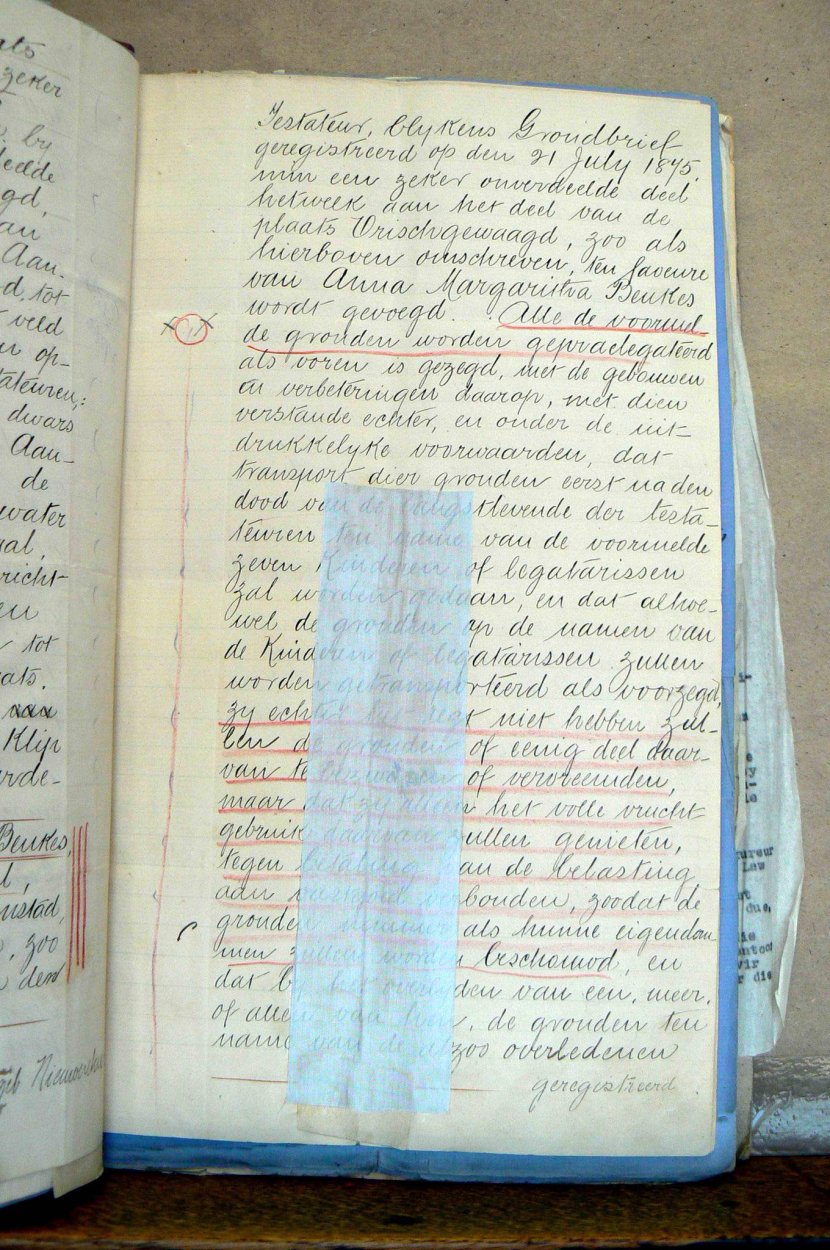 Testateur, blykens Grondbrief
geregistreerd op den 21 July 1875,
min een zeker onverdeelde deel
hetweek aan het deel van de
plaats Vrischgewaagd, zoo als
hierboven omschreven, ten faveure
van Anna Margaritha Beukes
wordt gevoegd. Alle de voormel-
de gronden worden gepraelegateerd
als voren is gezegd, met de gebouwen
en verbeteringen daarop, met dien
verstande echter, en onder de uit-
drukkelyke voorwaarden, dat
transport dier gronden eerst na den
dood van de langstlevende der testa-
teuren ten name van de voormelde
zeven Kinderen of legatarissen
zal worden gedaan, en dat alhoe-
wel de gronden op de namen van
de Kinderen of legatarissen zullen
worden getransporteerd als voorzegd,
zy echter het regt niet hebben zul-
len de gronden of eenig deel daar-
van te bezwaren of vervreemden,
maar dat zy alleen het volle vrucht
gebruik daarvan zullen genieten,
tegen betaling van de belasting
aan vastgoed verbonden, zoodat de
gronden nimmer als hunne eigendom-
men zullen worden beschouwd, en
dat by het overlyden van een, meer,
of allen van hen, de gronden ten
name van de alzoo overledenen
geregistreerd